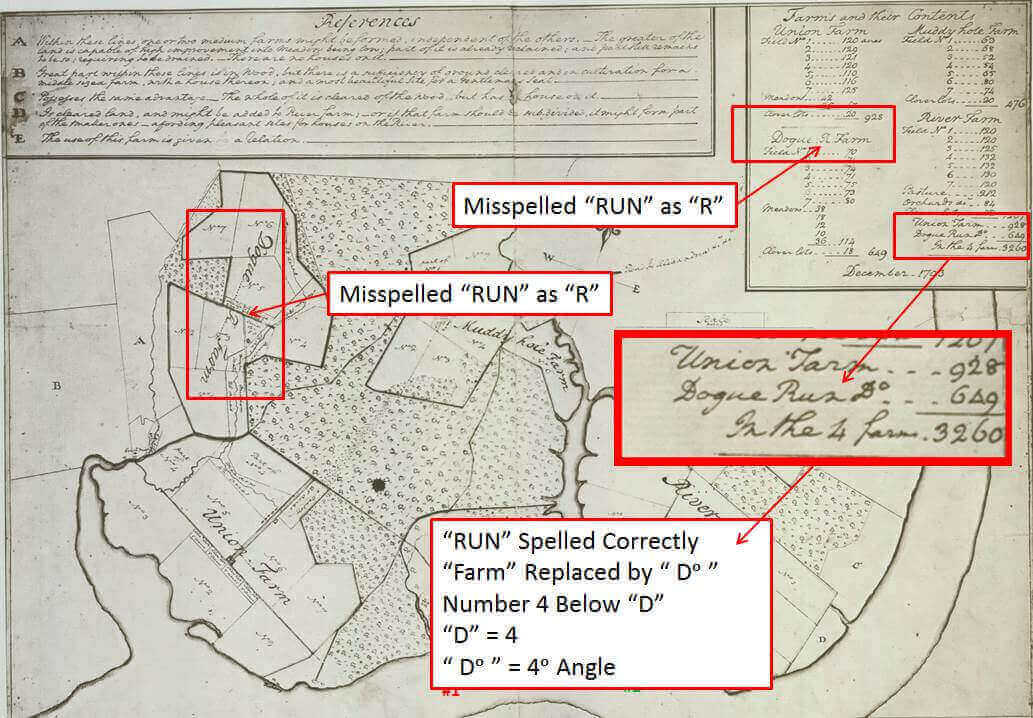 References
A Within these lines, one or two medium farms might be formed, independent of the others. The greater of the
land is capable of high improvement into meadow being low; part of it is already reclaimed; and part that remains
to be so, requiring to be drained. There are no houses on it.
B Great part within these lines is in Wood, but there is a sufficiency of ground cleared and in cultivation for a
middle sized farm with a house thereon; and a most beautiful site for a Gentlemans Seat.
C Possesses the same advantage. The whole of it is cleared of the wood, but has house on it.
D Is cleared land, and might be added to River farm; or if that farm should be subdivided, it might form part
of the smaller ones affording pleasant sites for houses on the River.
E The use of this farm is given a Relation.
Farms and their Contents
Union Farm
Field No 1 120 acres
2 120
3 127
4
5 110
6 116
7 125
Meadow 42
Clover Lots 20 928
Dogue R Farm
Field No 1 70
3 74
4 71
5 75
6 73
7 80
Meadow 38
18
12
10
36 114
Clover Lots 18 649
Muddy hole Farm
Field No 1
2 68
3 52
4 54
5 65
6 80
7 74
Clover Lots 20 476
River Farm
Field No 1 120
2 120
3 125
4 132
5 132
6 130
7 120
Pasture 212
Orchard &c 84
Union Farm 928
Dogue Run Do 649
In the 4 farms 3260
December 1793
Misspelled “RUN” as “R”
Misspelled “RUN” as “R”
W
E
A
B
Dogue
R
Farm
Muddy hole Farm
1207
Union Farm . . . 928
Dogue Run Do. . . 649
In the 4 farms. 3260
Union Farm
River
C
D
“RUN” Spelled Correctly
“Farm” Replaced by “ Dº ”
Number 4 Below “D”
“D” = 4
“ Dº ” = 4º Angle
#1